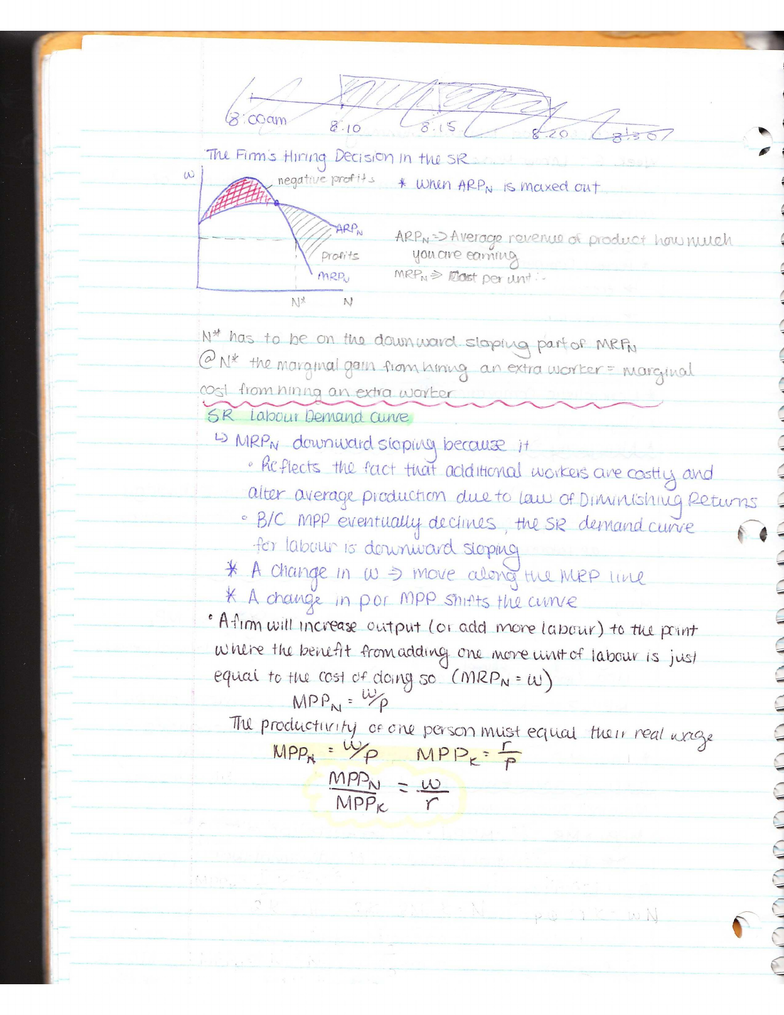 8:00am 8.10 8.15 8.20 8:30
The Firm's Hiring Decision in the SR
w
negative profits
* when ARPN is maxed out
ARPN
profits
MRPN
N*
N
ARPN => Average revenue of product how much
you are earning
MRPN => Cost per unit
N* has to be on the downward sloping part of MRPN
@ N* the marginal gain from hiring an extra worker = marginal
cost from hiring an extra worker
SR Labour Demand Curve
↳ MRPN downward sloping because it
• Reflects the fact that additional workers are costly and
alter average production due to Law of Diminishing Returns
• B/C MPP eventually declines, the SR demand curve
for labour is downward sloping
* A change in w => move along the MRP line
* A change in p or MPP shifts the curve
• A firm will increase output (or add more labour) to the point
where the benefit from adding one more unit of labour is just
equal to the cost of doing so (MRPN = w)
MPPN = w/p
The productivity of one person must equal their real wage
MPPN = w/p MPPK = r/p
MPPN/MPPK = w/r